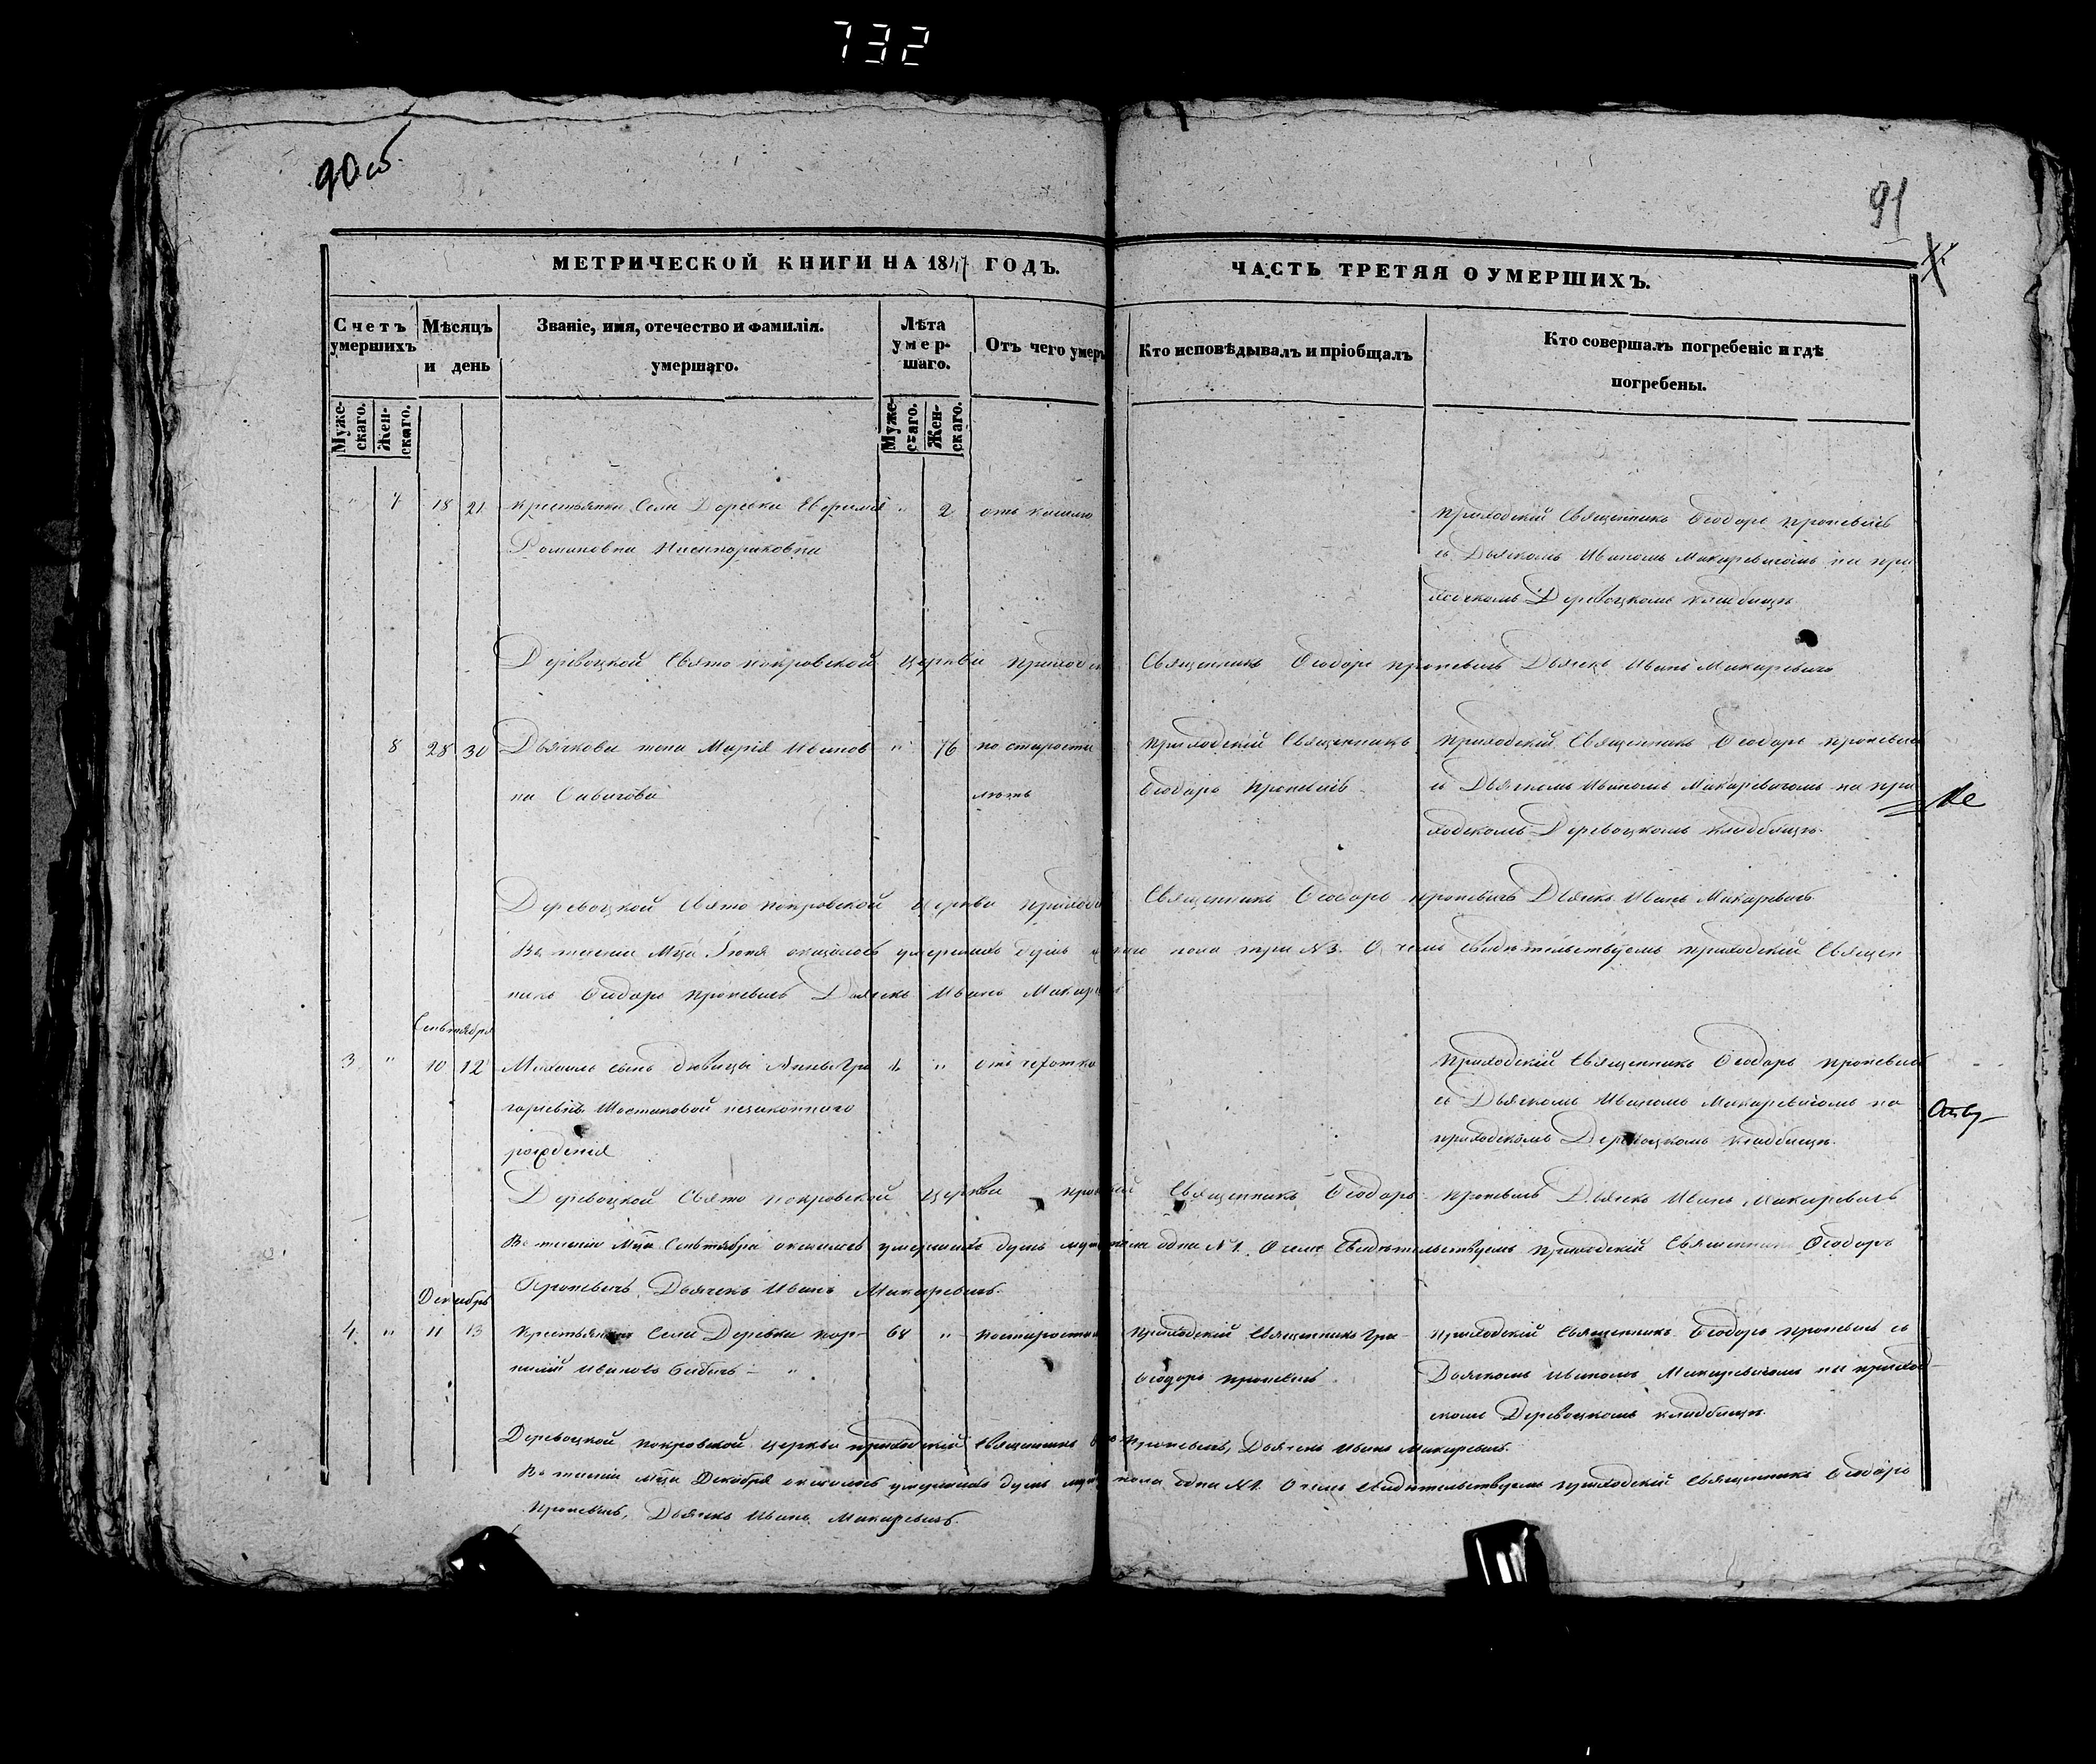 732
90 об.
91
МЕТРИЧЕСКОЙ КНИГИ НА 1847 ГОДЪ.
ЧАСТЬ ТРЕТЯЯ О УМЕРШИХЪ.
Счетъ умершихъ
Мѣсяцъ и день
Званіе, имя, отечество и фамилія.
умершаго.
Лѣта умер-шаго.
Отъ чего умеръ
Кто исповѣдывалъ и пріобщалъ
Кто совершалъ погребеніе и гдѣ
погребены.
Муже-скаго.
Жен-скаго.
Муже-скаго.
Жен-скаго.
" 7 18 21 крестьянка Села Деревки Евфимія " 2 отъ кашлю
Романовна
Приходскій Священникъ Ѳеодоръ Проневичь
съ Дьячкомъ Иваномъ Макаревичомъ на при
ходскомъ Деревоцкомъ кладбищѣ
Деревоцкой Свято Покровской Церкви Приходскій Священникъ Ѳеодоръ Проневичь Дьячекъ Иванъ Макаревичь
8 28 30 Дьячкова жена Марія Иванов " 76 по старости
на Савичова лѣтъ
Приходскій Священникъ
Ѳеодоръ Проневичь
Приходскій Священникъ Ѳеодоръ Проневичь
съ Дьячкомъ Иваномъ Макаревичомъ на при
ходскомъ Деревоцкомъ кладбищѣ.
Деревоцкой Свято Покровской Церкви Приходскій Священникъ Ѳеодоръ Проневичь Дьячекъ Иванъ Макаревичь
Въ теченіи Мца Іюня оказалось умершихъ душъ женск пола три №3. О чемъ свидѣтельствуемъ приходскій Священ
никъ Ѳеодоръ Проневичь Дьячекъ Иванъ Макаревичь
Сентября
3 " 10 12 Михаилъ сынъ дѣвицы Анны Гри " отъ чехотки
горьевны Шостаковой незаконнаго
рожденія
Приходскій Священникъ Ѳеодоръ Проневичь
съ Дьячкомъ Иваномъ Макаревичомъ на
приходскомъ Деревоцкомъ кладбищѣ.
Деревоцкой Свято Покровской Церкви Приходскій Священникъ Ѳеодоръ Проневичь Дьячекъ Иванъ Макаревичь
Въ теченіи Мца Сентября оказалось умершихъ душъ муж пола одна №1. О чемъ свидѣтельствуемъ Приходскій Священникъ Ѳеодоръ
Проневичь, Дьячекъ Иванъ Макаревичь.
Декабрь
4 " 11 13 Крестьянинъ Села Деревки Кор- 68 " по старости
нилій Ивановъ Бабичь –
Приходскій Священникъ
Ѳеодоръ Проневичь
Приходскій Священникъ Ѳеодоръ Проневичь съ
Дьячкомъ Иваномъ Макаревичомъ на приход-
скомъ Деревоцкомъ кладбищѣ
Деревоцкой Покровской Церкви приходскій Священникъ Проневичь, Дьячекъ Иванъ Макаревичь.
Въ теченіи Мца Декабря оказалось умершихъ душъ муж пола одна №1. О чемъ свидѣтельствуемъ приходскій Священникъ Ѳеодоръ
Проневичь, Дьячекъ Иванъ Макаревичь.